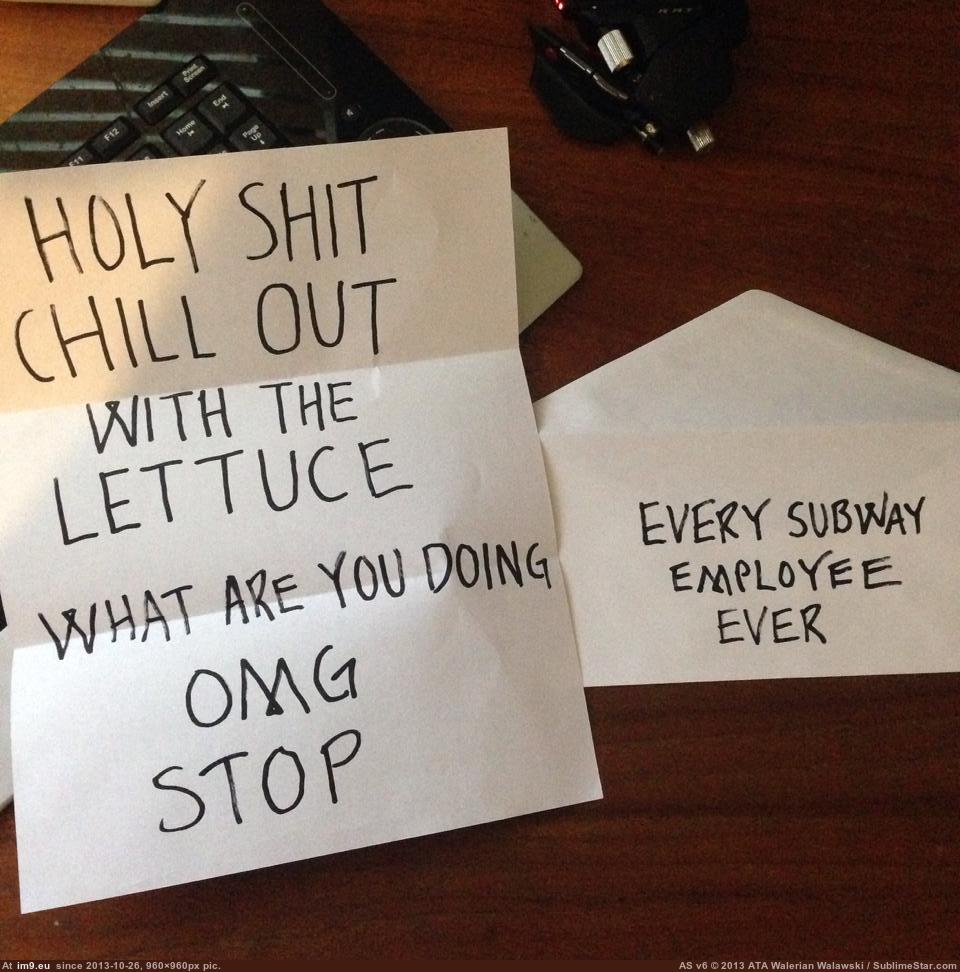 Print
Screen
Insert
End
F12
Home
Page
Up
F11
HOLY SHIT
CHILL OUT
WITH THE
LETTUCE
WHAT ARE YOU DOING
OMG
STOP
EVERY SUBWAY
EMPLOYEE
EVER
At im9.eu since 2013-10-26, 960×960px pic.
AS v6 © 2013 ATA Walerian Walawski / SublimeStar.com